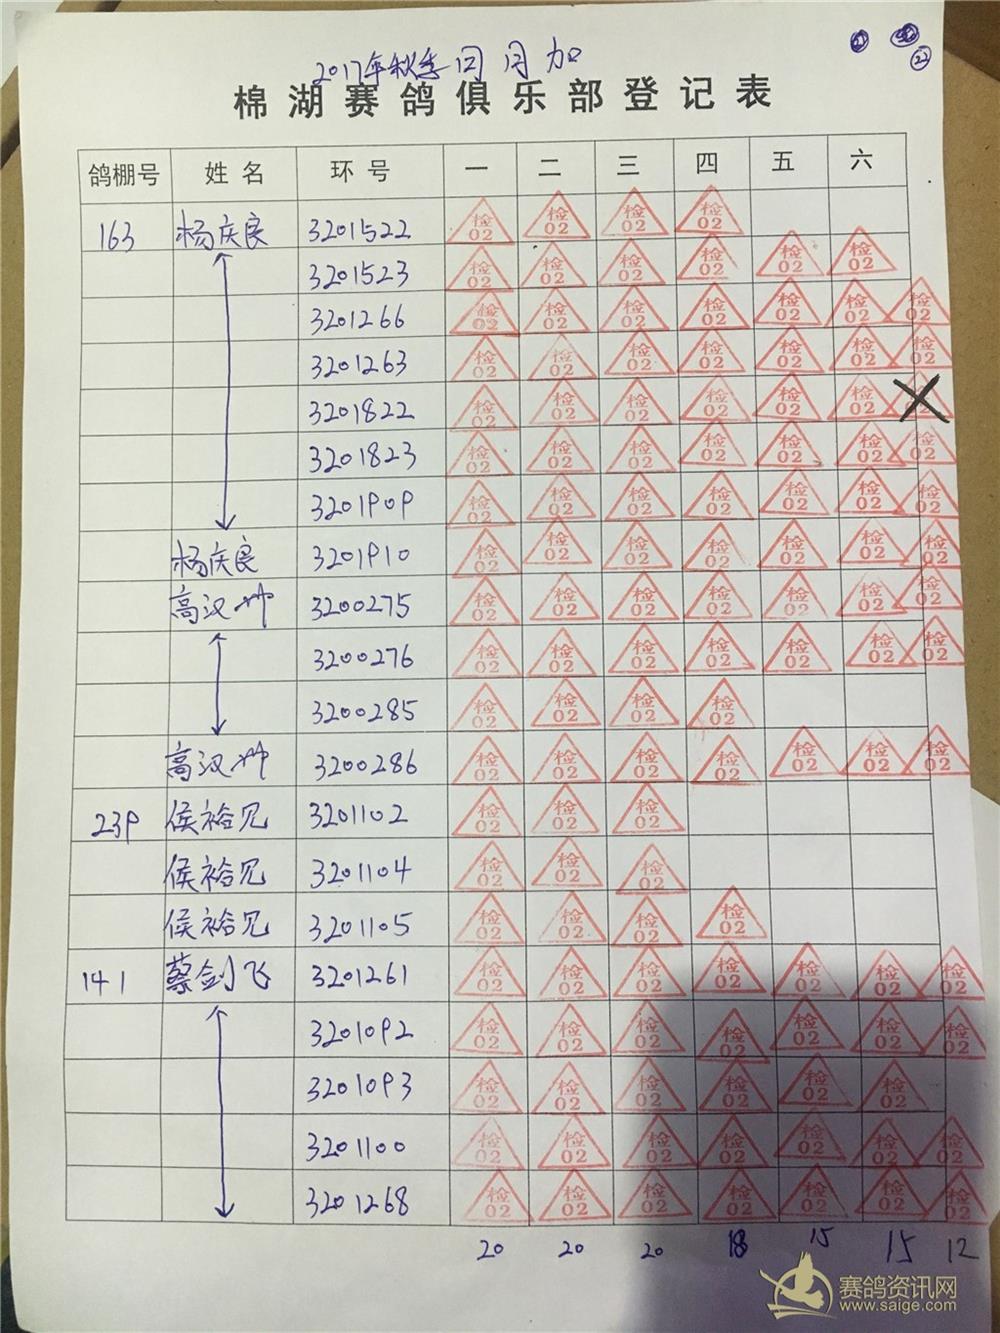 2017年秋季回 月 加
22
棉湖赛鸽俱乐部登记表
鸽棚号 姓名 环号 一 二 三 四 五 六
163 杨庆良 3201522 检02 检02 检02 检02
3201523 检02 检02 检02 检02 检02 检02
3201266 检02 检02 检02 检02 检02 检02 检02
3201263 检02 检02 检02 检02 检02 检02 检02
3201822 检02 检02 检02 检02 检02 检02
3201823 检02 检02 检02 检02 检02 检02 检02
3201909 检02 检02 检02 检02 检02 检02 检02
杨庆良 3201910 检02 检02 检02 检02 检02 检02 检02
高汉 3200275 检02 检02 检02 检02 检02 检02 检02
3200276 检02 检02 检02 检02 检02 检02 检02
3200285 检02 检02 检02 检02
高汉 3200286 检02 检02 检02 检02 检02 检02 检02
239 侯裕见 3201102 检02 检02 检02
侯裕见 3201104 检02 检02 检02
侯裕见 3201105 检02 检02 检02 检02
141 蔡剑飞 3201261 检02 检02 检02 检02 检02 检02 检02
3201092 检02 检02 检02 检02 检02 检02 检02
3201093 检02 检02 检02 检02 检02 检02
3201100 检02 检02 检02 检02 检02 检02 检02
3201268 检02 检02 检02 检02 检02 检02 检02
20 20 20 18 15 15 12
赛鸽资讯网
www.saige.com